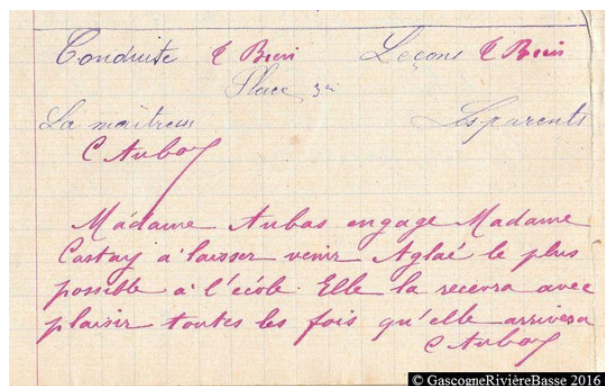 Conduite t Bien Leçons t Bien
Place 3e
La maîtresse Les parents
C Aubas
Madame Aubas engage Madame
Castay à laisser venir Aglaé le plus
possible à l'école. Elle la recevra avec
plaisir toutes les fois qu'elle arrivera
C Aubas
© GascogneRivièreBasse 2016